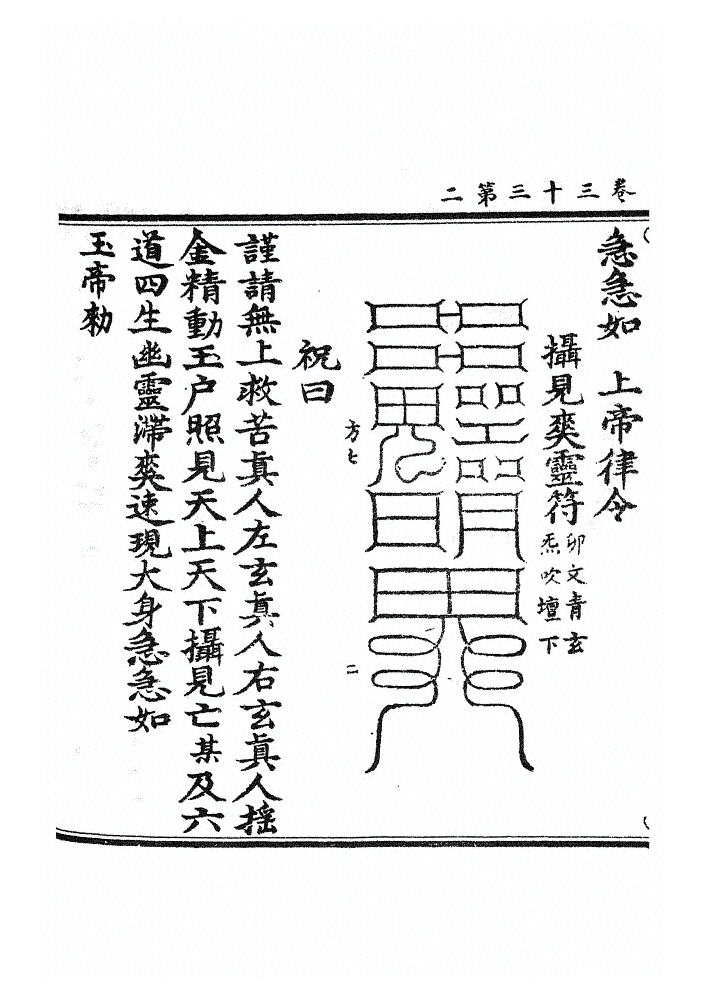 二第三十三卷
急急如　上帝律令
攝見爽靈符
卯文青玄
炁吹壇下
方七
二
祝曰
謹請無上救苦真人左玄真人右玄真人揺
金精動玉户照見天上天下攝見亡某及六
道四生幽靈滯爽速現大身急急如
玉帝勑